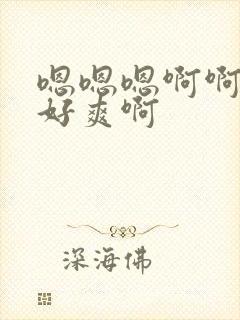 嗯嗯嗯啊啊
好爽啊
深海佛